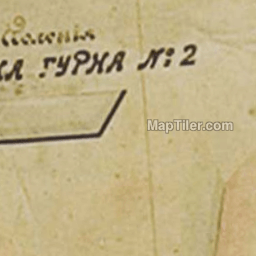 Колонія
КА ГУРКА №: 2
MapTiler.com